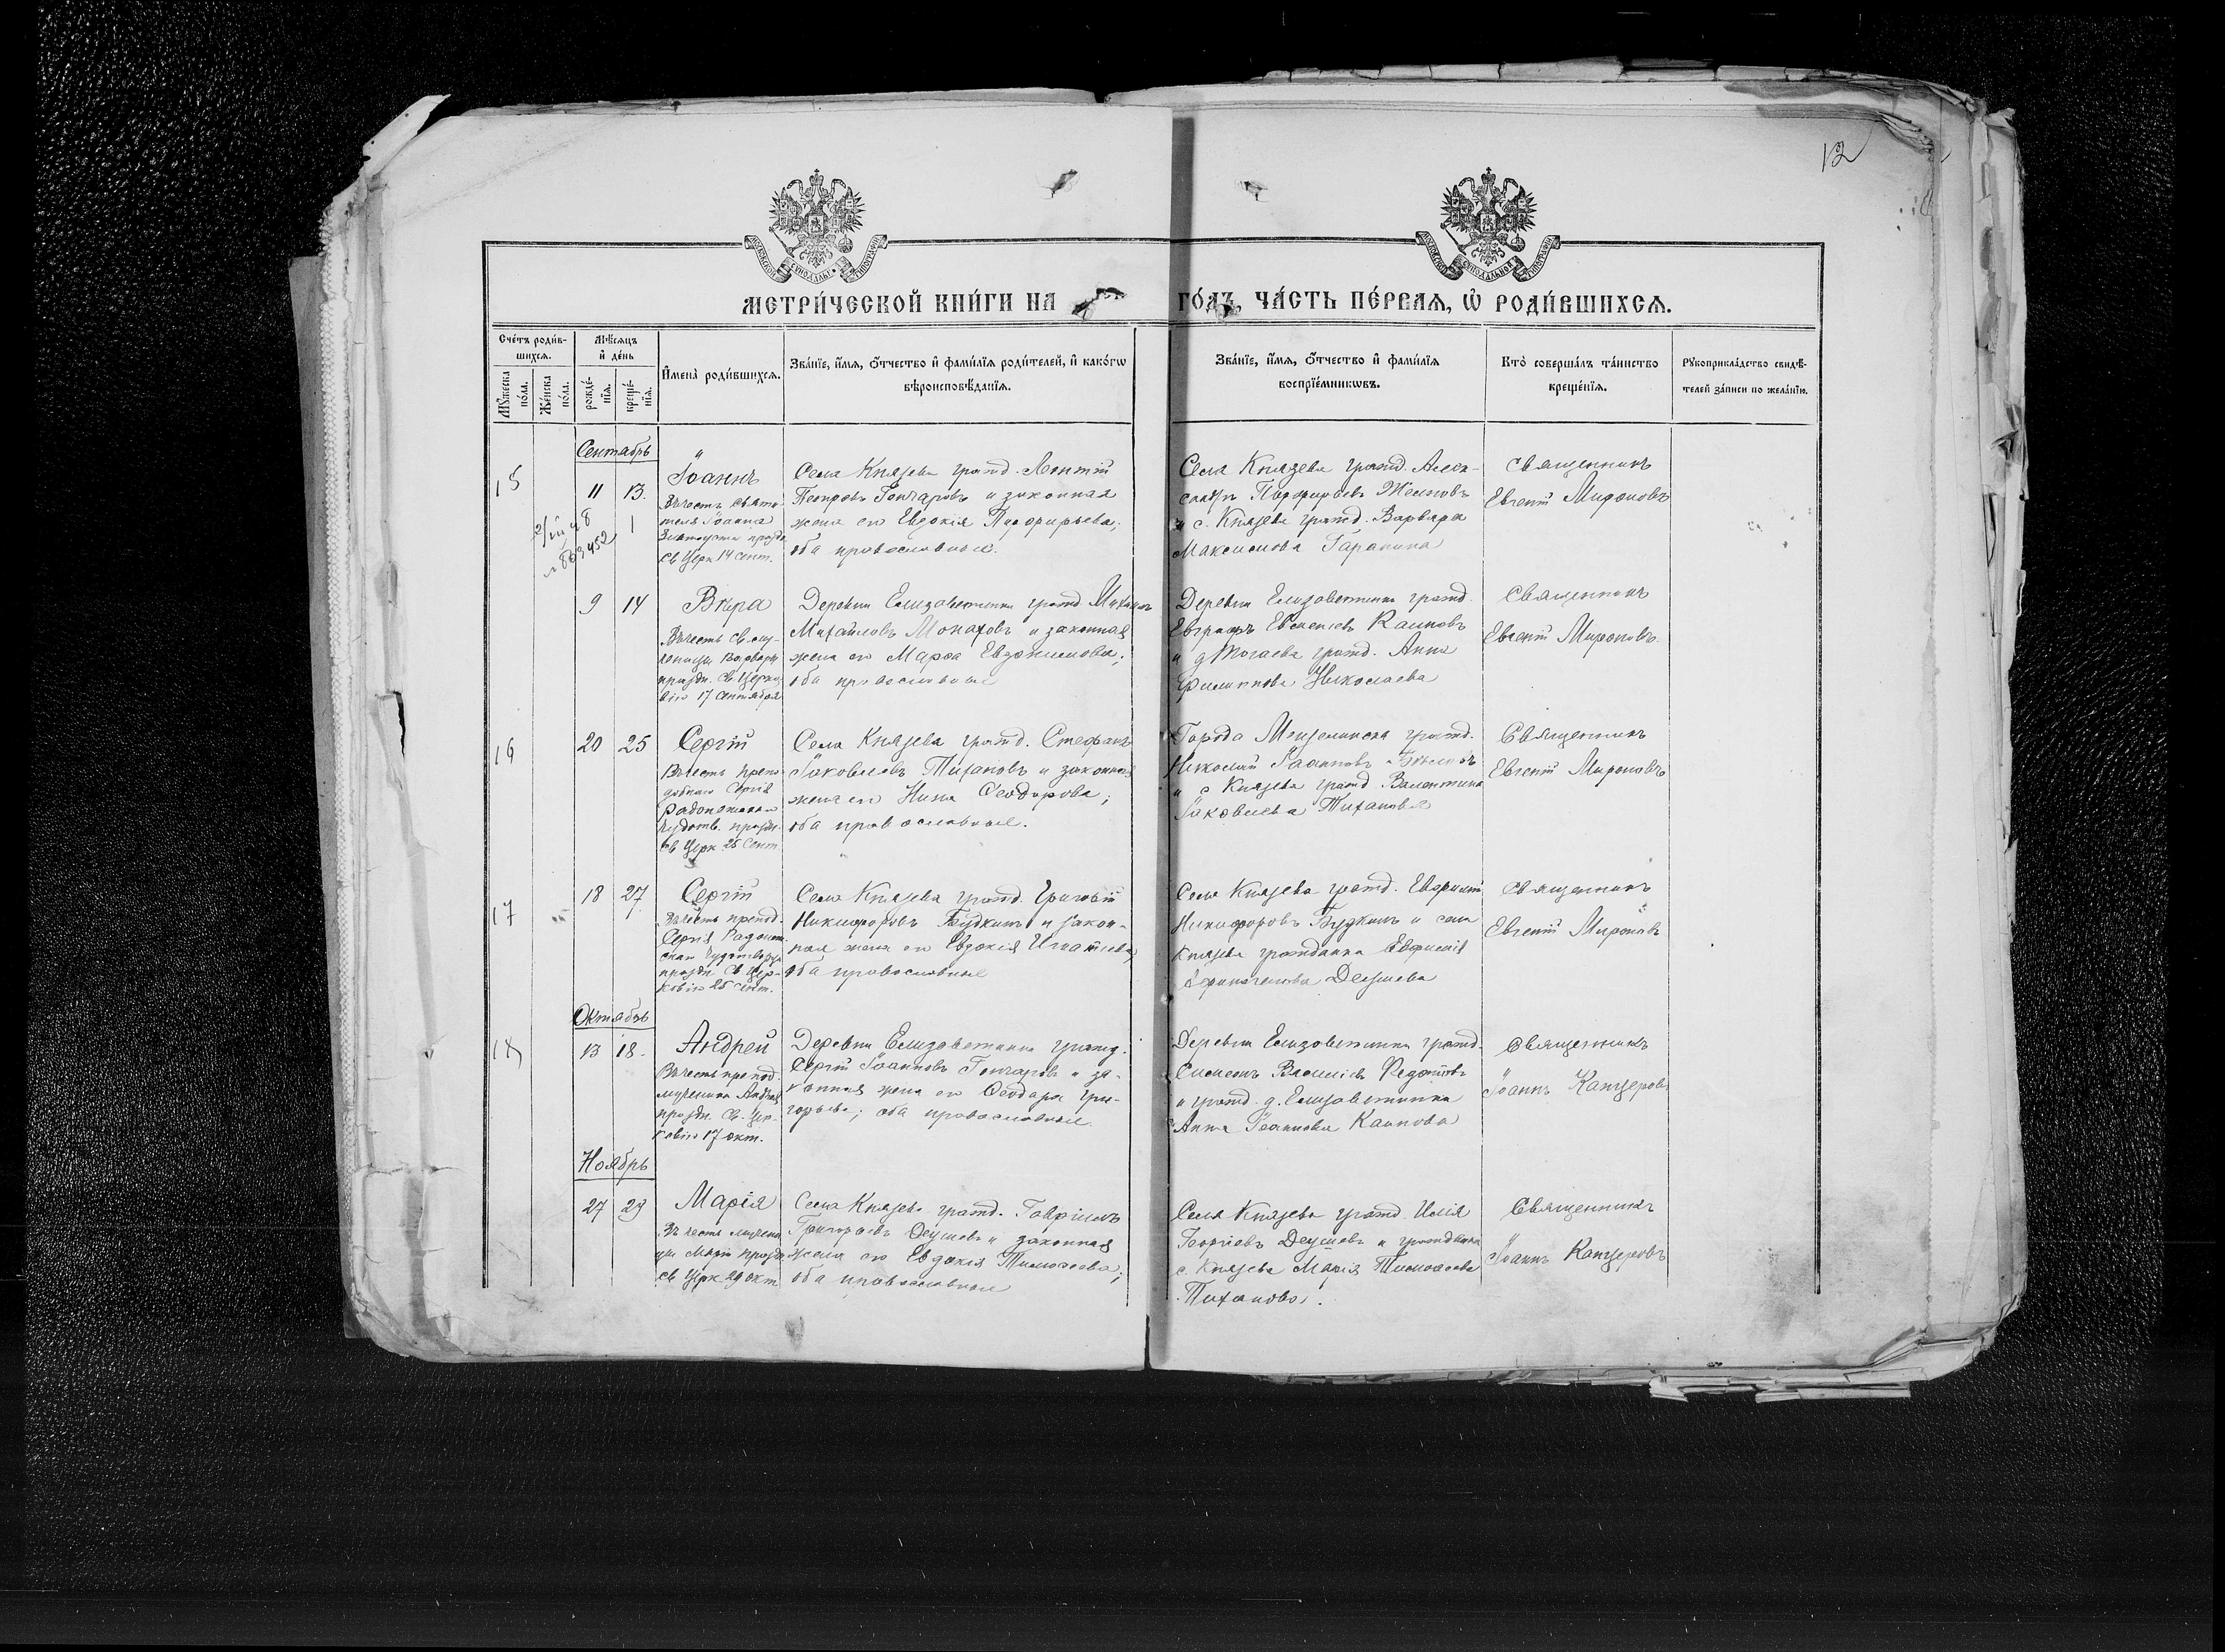 12
МЕТРИ́ЧЕСКОЙ КНИ́ГИ НА
ГО́ДЪ, ЧА́СТЬ ПЕ́РВАЯ, Ѡ РОДИ́ВШИХСЯ.
Сче́тъ роди́в-
шихся.
Мѣ́сяцъ
и́ де́нь
Му́жеска
по́ла.
Же́нска
по́ла.
рожде́-
нїя.
креще́-
нїя.
И҆мена̀ роди́вшихся.
Зва́нїе, и҆́мя, ѻ҆́тчество и҆ фами́лїя роди́телей, и҆ како́гѡ
вѣроисповѣ́данїя.
Зва́нїе, и҆́мя, ѻ҆́тчество и҆ фами́лїя
воспрїе́мникѡвъ.
Кто̀ соверша́лъ та́инство
креще́нїя.
Рꙋкоприкла́дство свидѣ́-
телей за́писи по жела́нїю.
Сентабрь
15
11
13.
Іоаннъ
Въ честь Святи-
теля Іоанна
Златоуста праздн
Св Церк 14 Сент.
Села Князева гражд. Леонтій
Петровъ Гончаровъ и законная
жена его Евдокія Парфирьева;
оба православные.
Села Князева гражд. Алек-
Порфирьевъ
и с. Князева гражд. Варвара
Максимова Гаранина
Священникъ
Евгеній Мироновъ
9
14
Вѣра
Въ честь Св. му-
ченицы
праздн. Св. Церко-
вію 17 Сентября
Деревни Елизаветинки гражд. Михаилъ
Михайловъ Монаховъ и законная
жена его Марѳа Евдокимова;
оба православные
Деревни Елизаветинки гражд.
Евграфъ Каиновъ
и д. гражд. Анна
Филиппова Николаева
Священникъ
Евгеній Мироновъ.
16
20
25
Сергій
Въ честь Препо-
добнаго Сергія
Радонежскаго
Чудотв. праздн.
Св Церк 25 Сент
Села Князева гражд. Стефанъ
Іаковлевъ Тихановъ и законная
жена его Нина Ѳеодорова;
оба православные.
Города Мензелинска гражд.
Николай Іоанновъ
и с Князева гражд Валентина
Іаковлева Тиханова
Священникъ
Евгеній Мироновъ
17
18
27
Сергій
Въ честь препод.
Сергія Радонеж-
скаго Чудотворца
праздн. Св. Цер-
ковію 25 Сент.
Села Князева гражд. Григорій
Никифоровъ Будкинъ и закон-
ная жена его Евдокія Игнатіева;
оба православные
Села Князева гражд.
Никифоровъ Будкинъ и села
Князева гражданка Евфимія
Деушева
Священникъ
Евгеній Мироновъ
Октябрь
18
13
18.
Андрей
Въ честь препод.
мученика Андрея
праздн. Св. Цер-
ковію 17 окт.
Деревни Елизаветинки гражд.
Сергій Іоанновъ Гончаровъ и за-
конная жена его Ѳеодора Гри-
горьева; оба православные.
Деревни Елизаветинки гражд.
Симеонъ Василіевъ Федотовъ
и гражд. д. Елизаветинки
Анна Іоаннова Каинова
Священникъ
Іоаннъ Канцеровъ
Ноябрь
27
29
Марія
Въ честь мучени-
цы Маріи праздн
Св Церк 29 окт
Села Князева гражд. Гавріилъ
Григорьевъ Деушевъ и законная
жена его Евдокія Тимоѳеева;
оба православные
Села Князева гражд. Илія
Георгіевъ Деушевъ и гражданка
с. Князева Марія Тимоѳеева
Тиханова.
Священникъ
Іоаннъ Канцеровъ